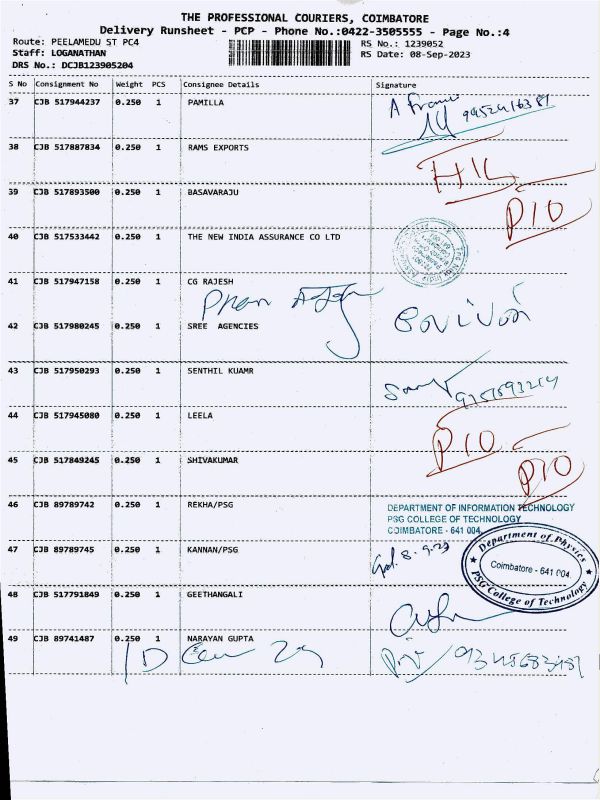 THE PROFESSIONAL COURIERS, COIMBATORE
Delivery Runsheet - PCP - Phone No.:0422-3505555 - Page No.:4
Route: PEELAMEDU ST PC4 RS No.: 1239052
Staff: LOGANATHAN RS Date: 08-Sep-2023
DRS No.: DCJB123905204
S No Consignment No Weight PCS Consignee Details Signature
37 CJB 517944237 0.250 1 PAMILLA
38 CJB 517887834 0.250 1 RAMS EXPORTS
39 CJB 517893500 0.250 1 BASAVARAJU
PIO
40 CJB 517533442 0.250 1 THE NEW INDIA ASSURANCE CO LTD
41 CJB 517947158 0.250 1 CG RAJESH
42 CJB 517980245 0.250 1 SREE AGENCIES
43 CJB 517950293 0.250 1 SENTHIL KUAMR
44 CJB 517945080 0.250 1 LEELA
PIO
45 CJB 517849245 0.250 1 SHIVAKUMAR
PIO
46 CJB 89789742 0.250 1 REKHA/PSG
DEPARTMENT OF INFORMATION TECHNOLOGY
PSG COLLEGE OF TECHNOLOGY
COIMBATORE - 641 004.
47 CJB 89789745 0.250 1 KANNAN/PSG
8.9.23
Department of Physics
Coimbatore - 641 004.
PSG College of Technology
48 CJB 517791849 0.250 1 GEETHANGALI
49 CJB 89741487 0.250 1 NARAYAN GUPTA